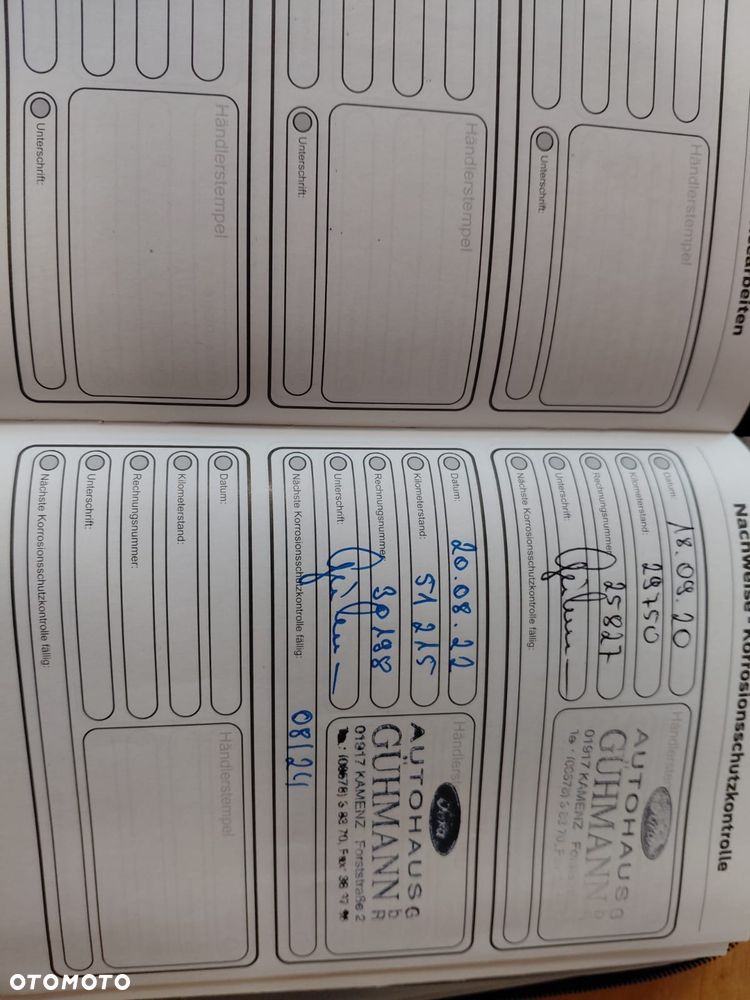 earbeiten
Händlerstempel
Unterschrift:
Händlerstempel
Unterschrift:
Händlerstempel
Unterschrift:
Nachweise - Korrosionsschutzkontrolle
Datum: 18.09.20
Kilometerstand: 29750
Rechnungsnummer: 25827
Unterschrift:
Nächste Korrosionsschutzkontrolle fällig:
Händlerstem
AUTOHAUS G
GÜHMANN b
01917 KAMENZ
Datum: 20.08.22
Kilometerstand: 51215
Rechnungsnummer: 30198
Unterschrift:
Nächste Korrosionsschutzkontrolle fällig: 08/24
Händlerst
AUTOHAUS G
GÜHMANN b
R
01917 KAMENZ Forststraße 2
Datum:
Kilometerstand:
Rechnungsnummer:
Unterschrift:
Nächste Korrosionsschutzkontrolle fällig:
Händlerstempel
OTOMOTO